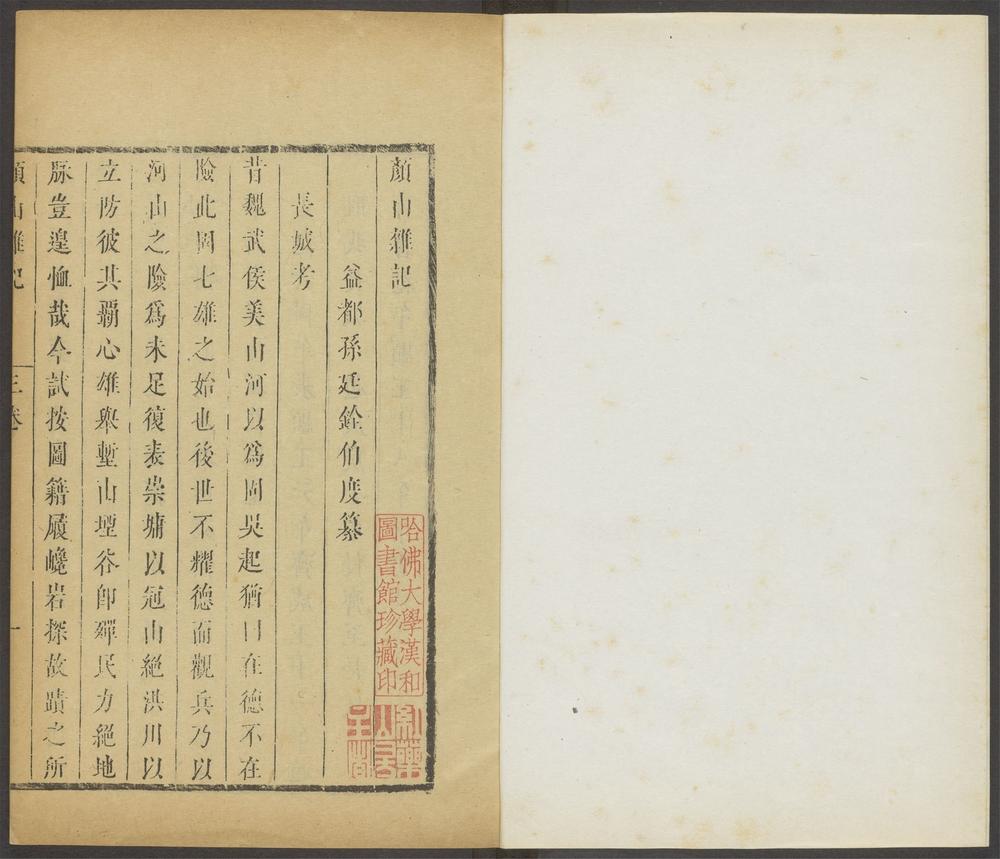 顏山雜記
益都孫廷銓伯度纂
長城考
昔魏武侯美山河以爲固吳起猶曰在德不在
險此固七雄之始也後世不耀德而觀兵乃以
河山之險爲未足復表崇墉以冠山絕洪川以
立防彼其霸心雄舉塹山堙谷卽殫民力絕地
脉豈遑恤哉今試按圖籍履巉岩探故蹟之所
顏山雜記
三卷
一
哈佛大學漢和
圖書館珍藏印